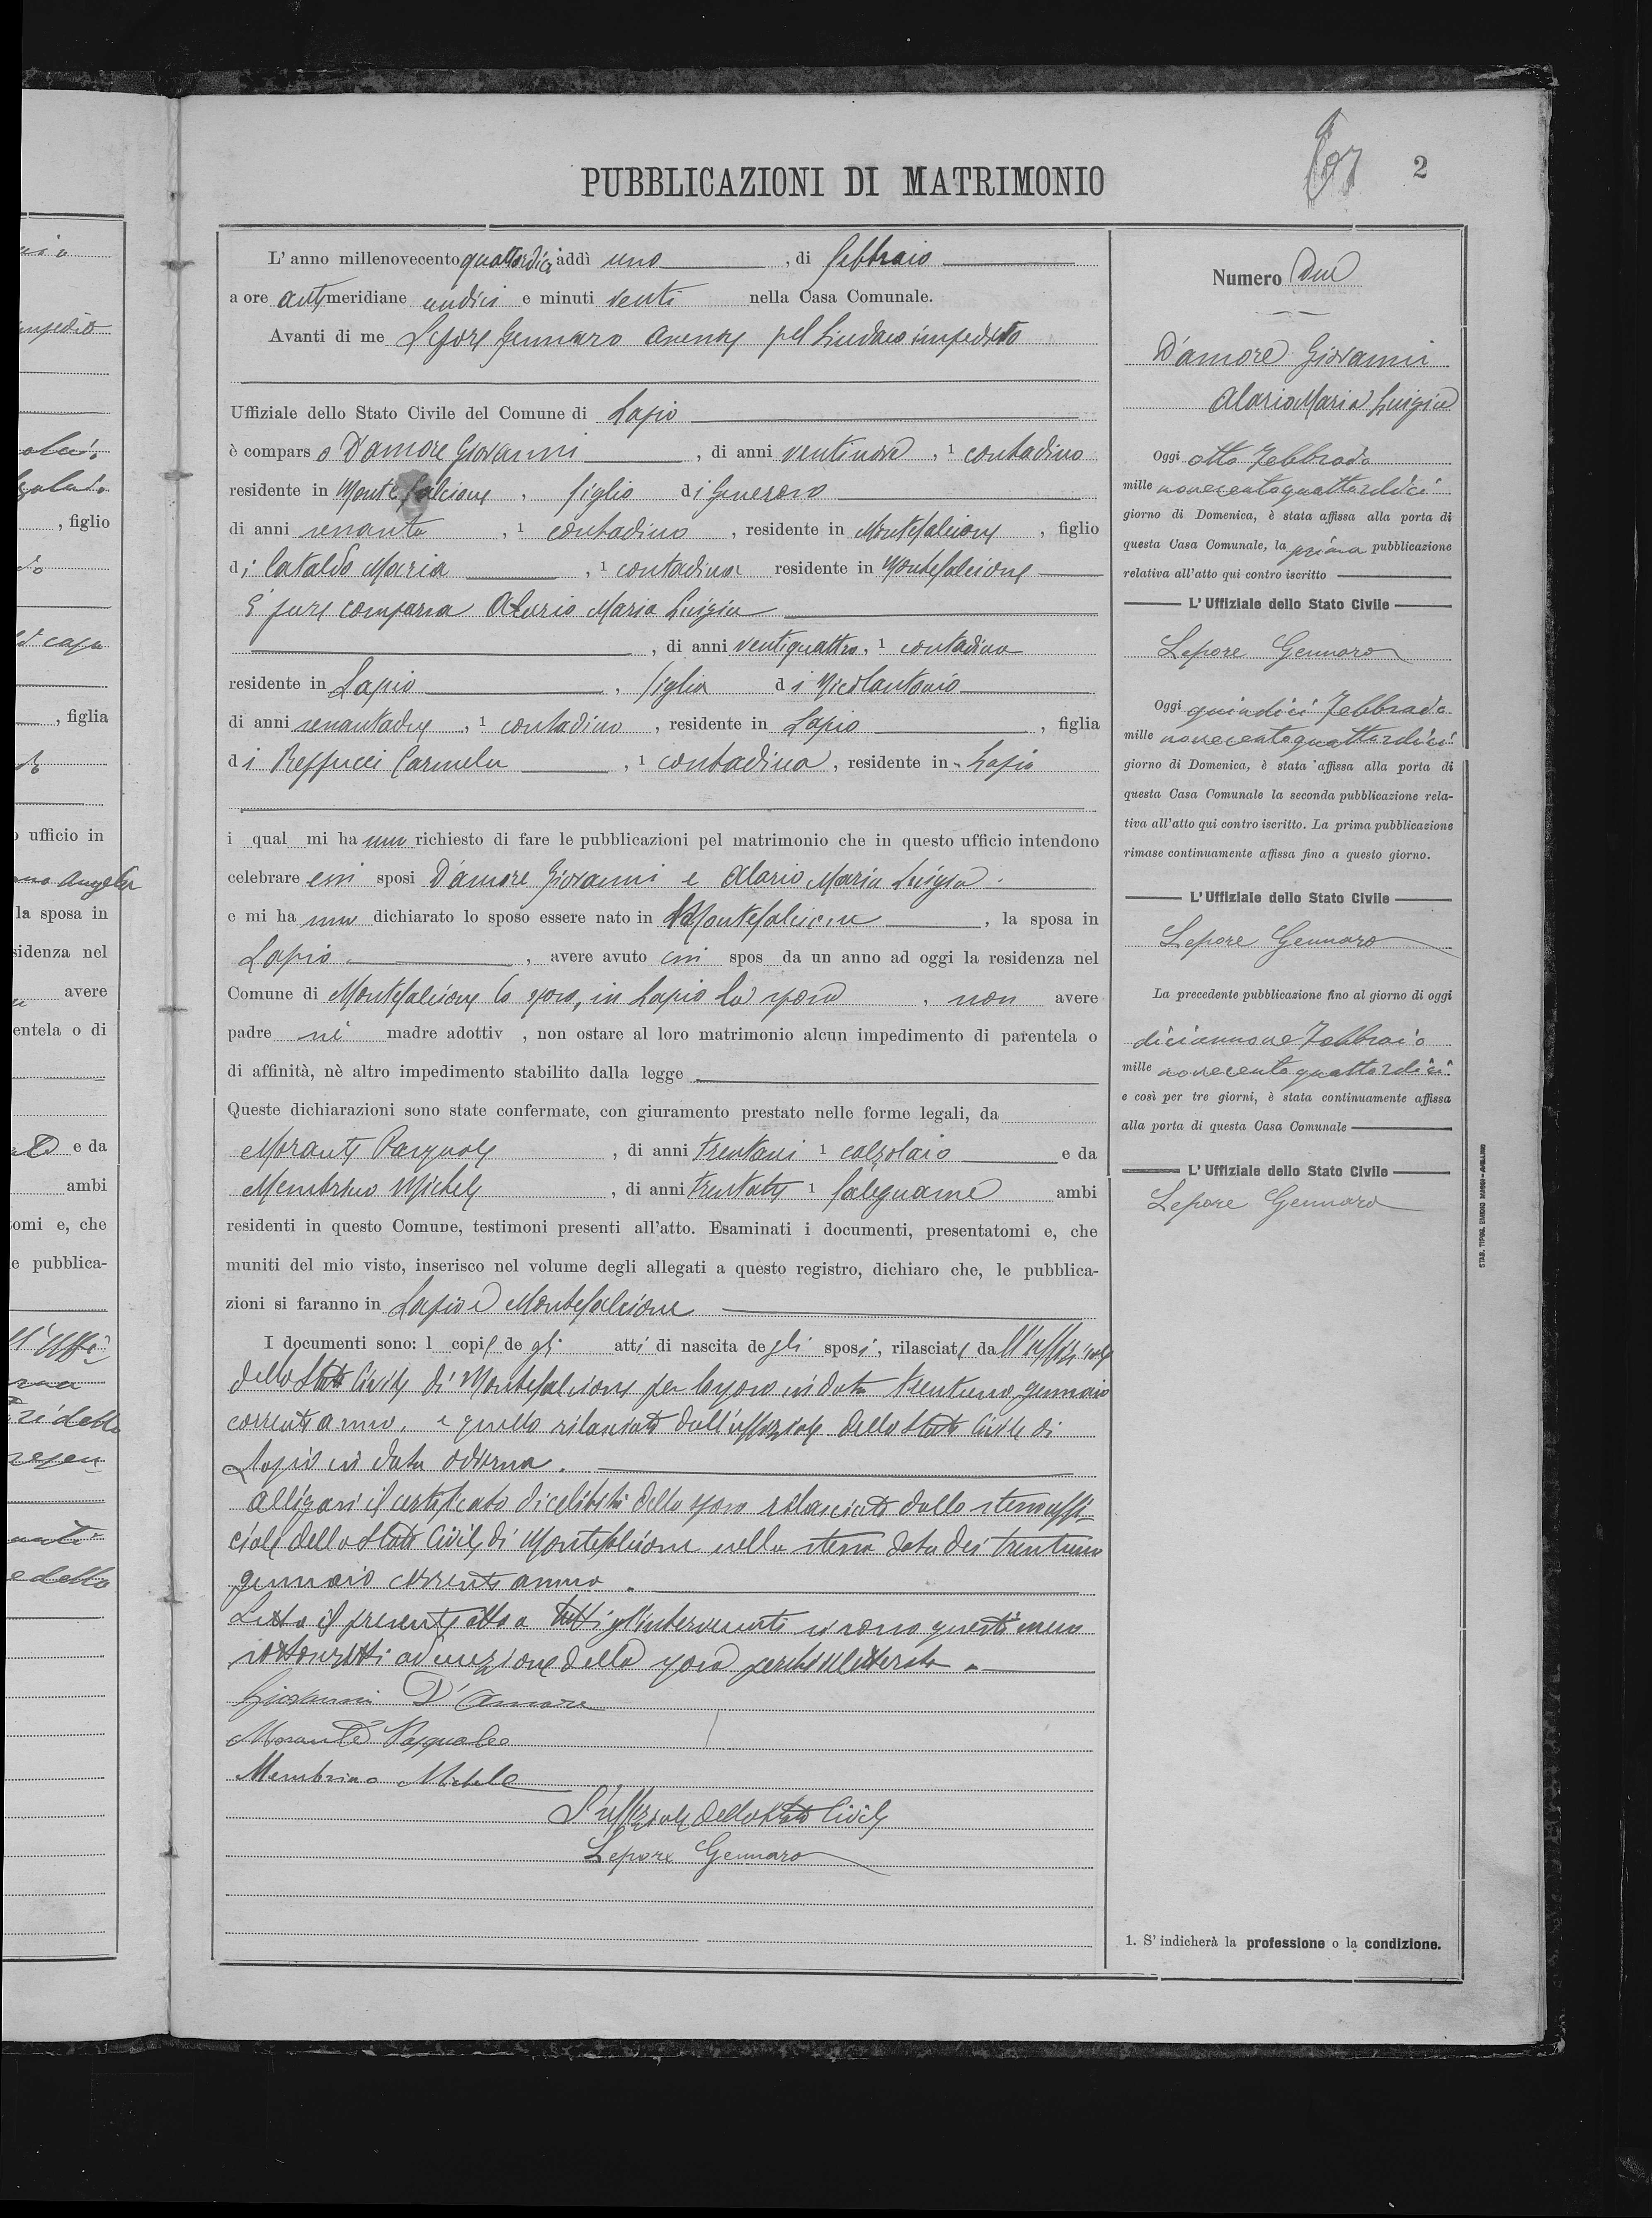 PUBBLICAZIONI DI MATRIMONIO
2
L'anno millenovecento quattordici addì uno, di febbraio
a ore antimeridiane undici e minuti venti nella Casa Comunale.
Avanti di me Lepore Gennaro pel Sindaco impedito
Uffiziale dello Stato Civile del Comune di Lapio
è comparso D'amore Giovanni, di anni ventinove, 1 contadino
residente in Montefalcione, figlio di Generoso
di anni sessanta, 1 contadino, residente in Montefalcione, figlio
di Cataldo Maria, 1 contadina residente in Montefalcione
È pure comparsa Alario Maria Luigia
, di anni ventiquattro, 1 contadina
residente in Lapio, figlia di Nicolantonio
di anni sessantadue, 1 contadino, residente in Lapio, figlia
di Reppucci Carmela, 1 contadina, residente in Lapio
i qual mi ha nno richiesto di fare le pubblicazioni pel matrimonio che in questo ufficio intendono
celebrare essi sposi D'amore Giovanni e Alario Maria Luigia.
e mi ha nno dichiarato lo sposo essere nato in Montefalcione, la sposa in
Lapio, avere avuto essi spos da un anno ad oggi la residenza nel
Comune di Montefalcione lo sposo, in Lapio la sposa, non avere
padre nè madre adottiv , non ostare al loro matrimonio alcun impedimento di parentela o
di affinità, nè altro impedimento stabilito dalla legge
Queste dichiarazioni sono state confermate, con giuramento prestato nelle forme legali, da
Morante Pasquale, di anni trentasei 1 calzolaio e da
Membrino Michele, di anni 1 falegname ambi
residenti in questo Comune, testimoni presenti all'atto. Esaminati i documenti, presentatomi e, che
muniti del mio visto, inserisco nel volume degli allegati a questo registro, dichiaro che, le pubblica-
zioni si faranno in Lapio e Montefalcione
I documenti sono: 1 copie de gli atti di nascita degli sposi, rilasciate dall'uffiziale
dello Stato Civile di Montefalcione per lo sposo in data trentuno gennaio
corrente anno, e quello rilasciato dall'uffiziale dello Stato Civile di
Lapio in data odierna.
Alligasi il certificato di celibato dello sposo rilasciato dallo stesso uffi-
ciale dello Stato Civile di Montefalcione nella stessa data dei trentuno
gennaio corrente anno.
Letto il presente atto a tutti gl'intervenuti si sono questi meco
sottoscritti ad eccezione della sposa perchè illetterata.
Giovanni D'Amore
Morante Pasquale
Membrino Michele
L'uffiziale dello Stato Civile
Lepore Gennaro
Numero Due
D'amore Giovanni
Alario Maria Luigia
Oggi otto Febbraio
mille novecentoquattordici
giorno di Domenica, è stata affissa alla porta di
questa Casa Comunale, la prima pubblicazione
relativa all'atto qui contro iscritto
L'Uffiziale dello Stato Civile
Lepore Gennaro
Oggi quindici Febbraio
mille novecentoquattordici
giorno di Domenica, è stata affissa alla porta di
questa Casa Comunale la seconda pubblicazione rela-
tiva all'atto qui contro iscritto. La prima pubblicazione
rimase continuamente affissa fino a questo giorno.
L'Uffiziale dello Stato Civile
Lepore Gennaro
La precedente pubblicazione fino al giorno di oggi
diciannove Febbraio
mille novecentoquattordici
e così per tre giorni, è stata continuamente affissa
alla porta di questa Casa Comunale
L'Uffiziale dello Stato Civile
Lepore Gennaro
1. S'indicherà la professione o la condizione.
, figlio
, figlia
ufficio in
la sposa in
sidenza nel
avere
entela o di
e da
ambi
omi e, che
e pubblica-